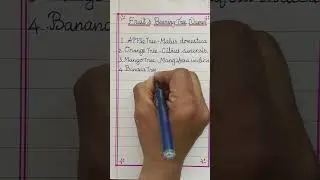 Fruit's Bearing Tree Name
1. Apple Tree - Malus domestica
2. Orange Tree - Citrus sinensis
3. Mango Tree - Mangifera indica
4. Banana Tree
4. Banana